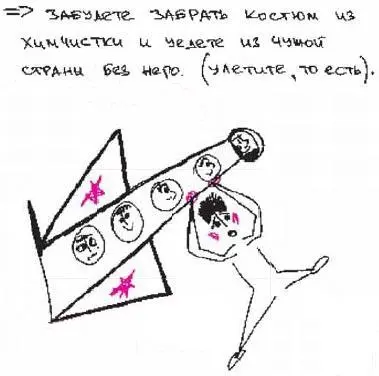 => ЗАБУДЕТЕ ЗАБРАТЬ КОСТЮМ ИЗ
ХИМЧИСТКИ И УЕДЕТЕ ИЗ ЧУЖОЙ
СТРАНИ БЕЗ НЕГО. (УЛЕТИТЕ, ТО ЕСТЬ).